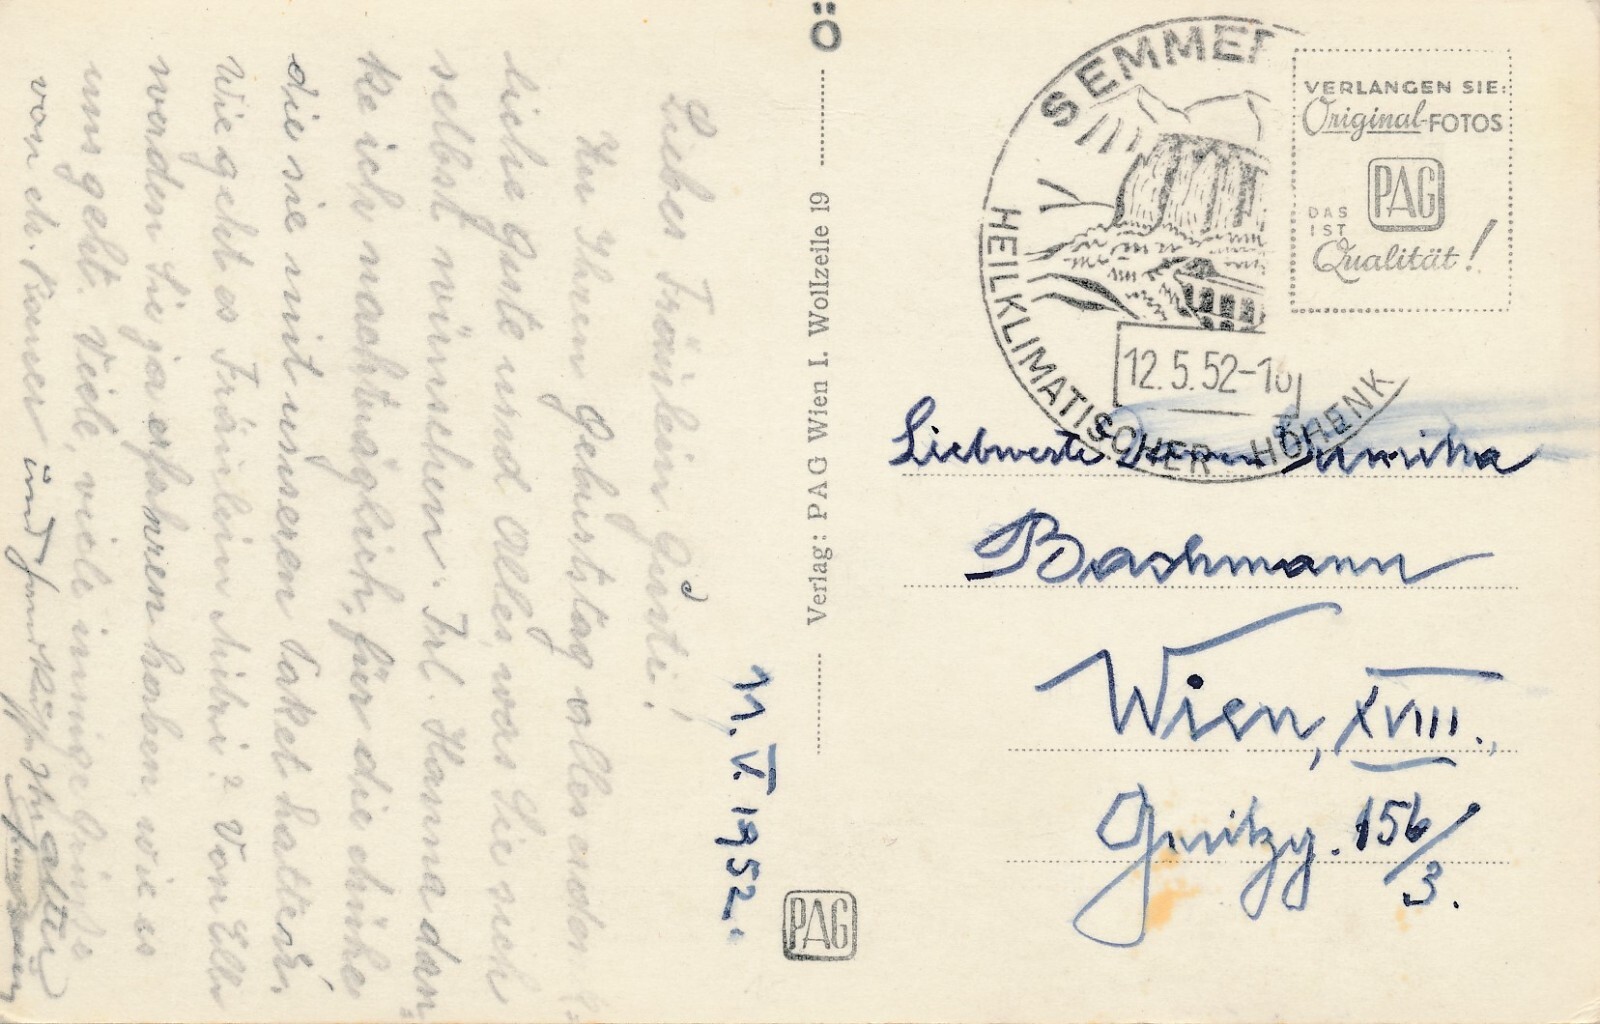 Liebes Fräulein Gusti!
Zu Ihrem Geburtstag alles erdenk-
liche Gute und Alles, was Sie sich
selbst wünschen. Frl. Hanna dan-
ke ich nachträglich, für die Mühe
die sie mit unseren Paket hatten.
Wie geht es Fräulein Mitzi? Von Elli
werden Sie ja erfahren haben, wie es
uns geht. Viele, viele innige Grüße
von
und
11. V. 1952.
Ö
Verlag: PAG Wien I. Wollzeile 19
PAG
SEMMER
HEILKLIMATISCHER HÖHENK
12.5.52-10
VERLANGEN SIE:
Original-FOTOS
PAG
DAS
IST
Qualität!
Liebwerte Familie
Bachmann
Wien, XVIII.,
156/3.